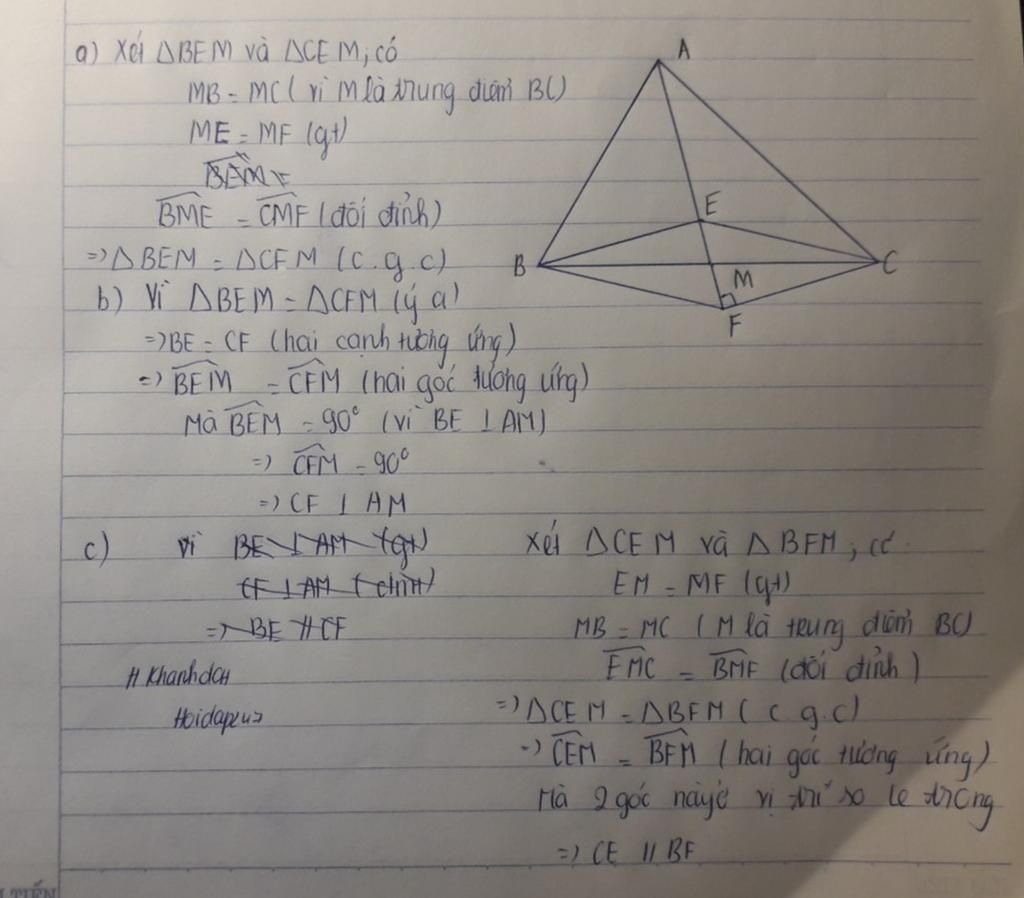 a) Xét ΔBEM và ΔCEM, có
MB = MC ( vì M là trung điểm BC)
ME = MF (gt)
BEM
BME = CMF (đối đỉnh)
=> ΔBEM = ΔCFM (c.g.c)
b) Vì ΔBEM = ΔCFM (ý a)
=> BE = CF (hai cạnh tương ứng)
=> BEM = CFM (hai góc tương ứng)
Mà BEM = 90° (vì BE ⊥ AM)
=> CFM = 90°
=> CF ⊥ AM
c) Vì BE ⊥ AM (gt)
CF ⊥ AM (cmt)
=> BE // CF
# KhanhdcH
A
E
B
C
M
F
Xét ΔCEM và ΔBFM, có
EM = MF (gt)
MB = MC ( M là trung điểm BC)
EMC = BMF (đối đỉnh)
=> ΔCEM = ΔBFM ( c.g.c)
=> CEM = BFM ( hai góc tương ứng)
Mà 2 góc này ở vị trí so le trong
=> CE // BF
TIẾN